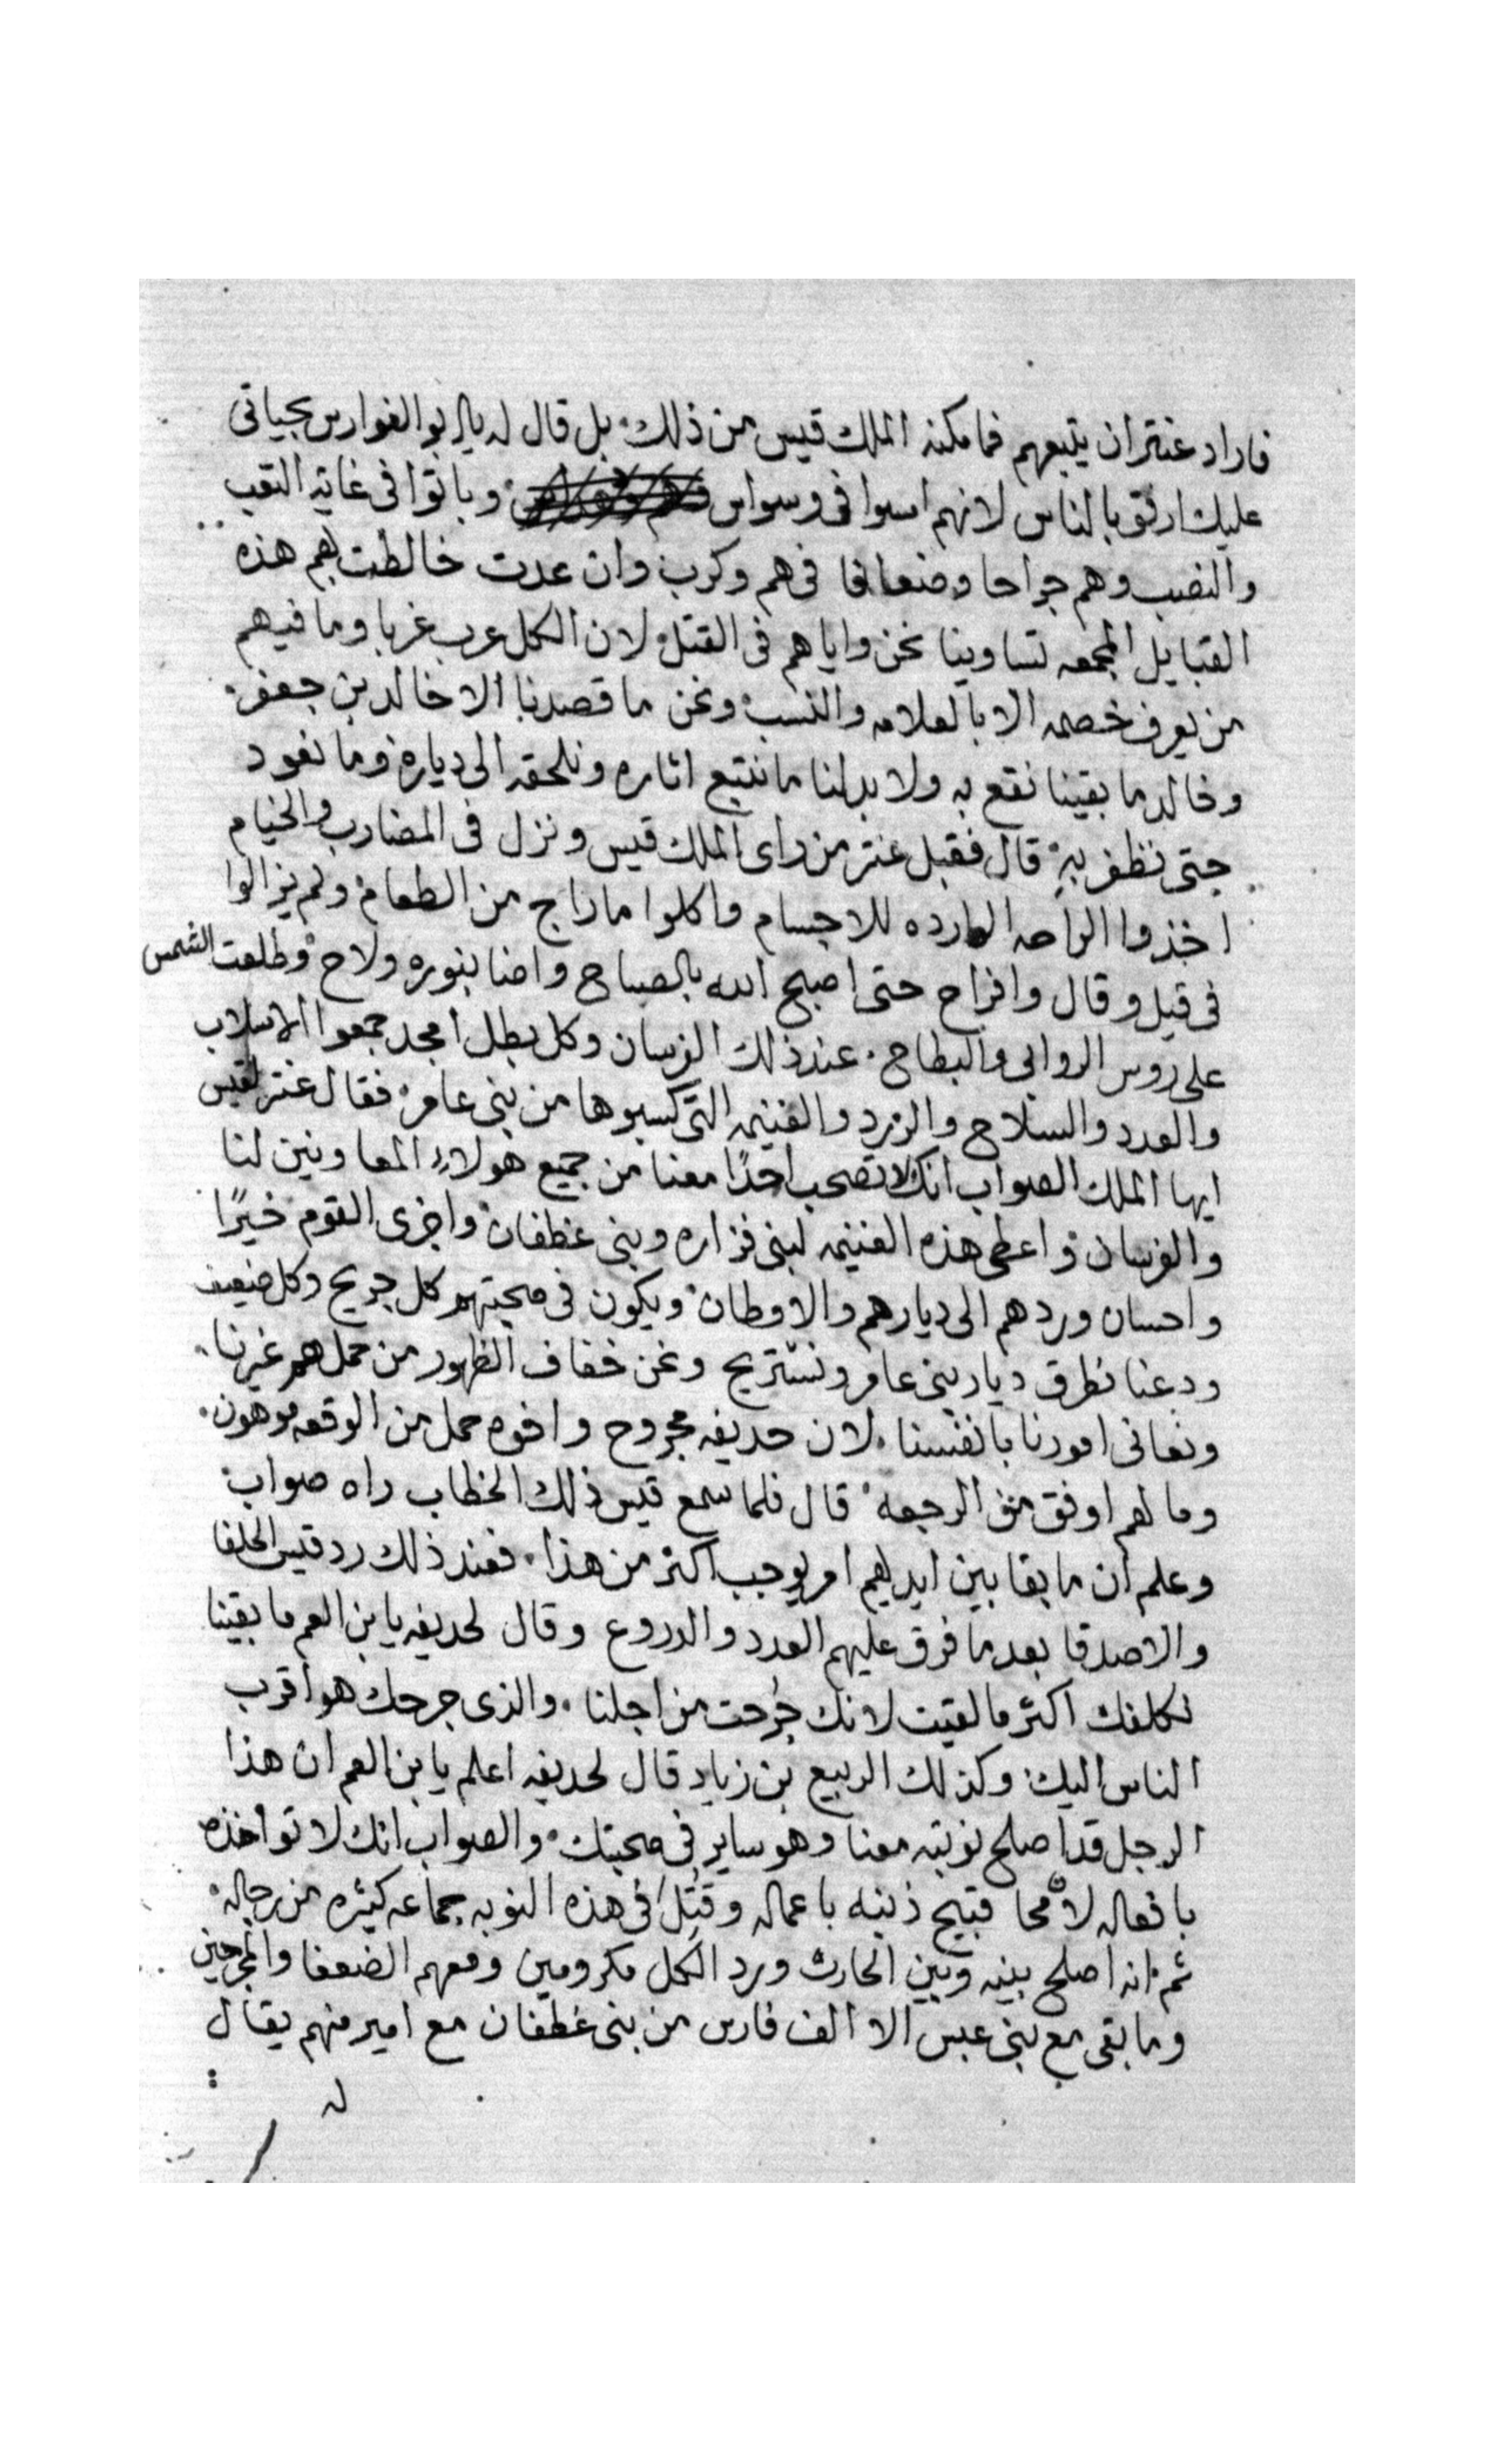 فاراد عنتر ان يتبعهم فما مكنه الملك قيس من ذلك بل قال له يا ابو الفوارس بحياتى
عليك ارفق بالناس لانهم امسوا فى وسواس وباتوا فى غاية التعب
والنصب وهم جراحا وضعافا فى هم وكرب وان عدت خالطت بهم هذه
القبايل المجمعه تساوينا نحن واياهم فى القتل لان الكل عرب غربا وما فيهم
من يعرف خصمه الا بالعلامه والنسب ونحن ما قصدنا الا خالد بن جعفر
وخالد ما بقينا نقع به ولا بد لنا ما نتبع اثاره ونلحقه الى دياره وما نعود
حتى نظفر به قال فقبل عنتر من راى الملك قيس ونزل فى المضارب والخيام
اخذوا الراحه للاجسام واكلوا ما راج من الطعام ولم يزالوا
فى قيل وقال وافراح حتى اصبح الله بالصباح واضا بنوره ولاح وطلعت الشمس
على روس الروابى والبطاح عند ذلك الفرسان وكل بطل امجد جمعوا الاسلاب
والعدد والسلاح والزرد والغنيمه التى كسبوها من بنى عامر فقال عنتر لقيس
ايها الملك الصواب انك لا تصحب احدًا معنا من جميع هولاء المعاونين لنا
والفرسان واعطى هذه الغنيمه لبنى فزاره وبنى غطفان واجزى القوم خيرًا
واحسان وردهم الى ديارهم والاوطان ويكون فى صحبتهم كل جريح وكل ضعيف
ودعنا نطرق ديار بنى عامر ونستريح ونحن خفاف الظهور من حمل هم غيرنا
ونعانى امورنا بانفسنا لان حديفه مجروح واخوه حمل من الوقعه موهون
وما لهم اوفق من الرجعه قال فلما سمع قيس ذلك الخطاب راه صواب
وعلم ان ما بقا بين ايديهم امر يوجب اكثر من هذا فعند ذلك رد قيس الحلفا
والاصدقا بعد ما فرق عليهم العدد والدروع وقال لحديفه يا بن العم ما بقينا
نكلفك اكثر ما لقيت لانك جُرحت من اجلنا والذى جرحك هو اقرب
الناس اليك وكذلك الربيع بن زياد قال لحديفه اعلم يا بن العم ان هذا
الرجل قد اصلح نوبته معنا وهو ساير فى صحبتك والصواب انك لا تواخذه
بافعاله لانه محا قبيح ذنبه باعماله وقُتل فى هذه النوبه جماعه كثيره من رجاله
ثم انه اصلح بينه وبين الحارث ورد الكل مكرومين ومعهم الضعفا والمجرحين
وما بقى مع بنى عبس الا الف فارس من بنى غطفان مع امير منهم يقال
له